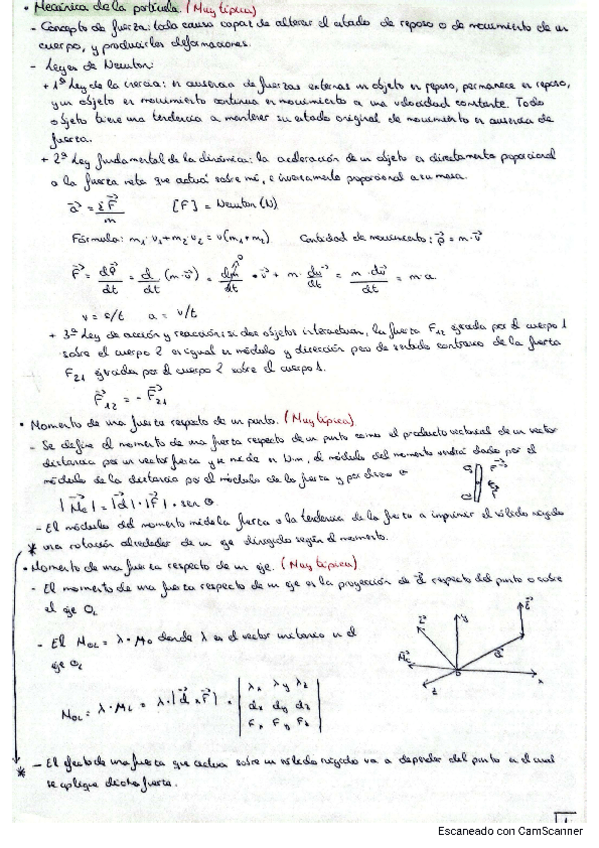 • Mecánica de la partícula. (Muy típica)
- Concepto de fuerza: toda causa capaz de alterar el estado de reposo o de movimiento de un
cuerpo, y producirles deformaciones.
- Leyes de Newton:
+ 1ª Ley de la inercia: en ausencia de fuerzas externas un objeto en reposo, permanece en reposo,
y un objeto en movimiento continua en movimiento a una velocidad constante. Todo
objeto tiene una tendencia a mantener su estado original de movimiento en ausencia de
fuerza.
+ 2ª Ley fundamental de la dinámica: la aceleración de un objeto es directamente proporcional
a la fuerza neta que actúa sobre mi, e inversamente proporcional a su masa.
a⃗ = ΣF⃗/m [F] = Newton (N)
Fórmula: m₁·v₁+m₂v₂ = v(m₁+m₂) Cantidad de movimiento: p⃗ = m·v⃗
F⃗ = dp⃗/dt = d/dt (m·v⃗) = dm/dt⁰ · v⃗ + m · dv⃗/dt = m · dv⃗/dt = m·a
v = e/t a = v/t
+ 3ª Ley de acción y reacción: si dos objetos interactuan, la fuerza F₁₂ ejercida por el cuerpo 1
sobre el cuerpo 2 es igual en módulo y dirección pero de sentido contrario de la fuerza
F₂₁ ejercida por el cuerpo 2 sobre el cuerpo 1.
F⃗₁₂ = - F⃗₂₁
• Momento de una fuerza respecto de un punto. (Muy típica)
- Se define el momento de una fuerza respecto de un punto como el producto vectorial de un vector
distancia por un vector fuerza y se mide en N·m, el módulo del momento vendrá dado por el
módulo de la distancia por el módulo de la fuerza y por el seno θ
|M⃗₀| = |d⃗|·|F⃗|·sen θ
- El módulo del momento mide la fuerza o la tendencia de la fuerza a imprimir el sólido rígido
* una rotación alrededor de un eje dirigido según el momento.
• Momento de una fuerza respecto de un eje. (Muy típica)
- El momento de una fuerza respecto de un eje es la proyección de respecto del punto o sobre
el eje OL
- El M_OL = λ·M₀ donde λ es el vector unitario en el
eje OL
M_OL = λ·M_L = λ·|d⃗ x F⃗| =
λx λy λz
dx dy dz
Fx Fy Fz
y
x
z
* - El efecto de una fuerza que actúa sobre un sólido rígido va a depender del punto en el cual
se aplique dicha fuerza.
1
Escaneado con CamScanner